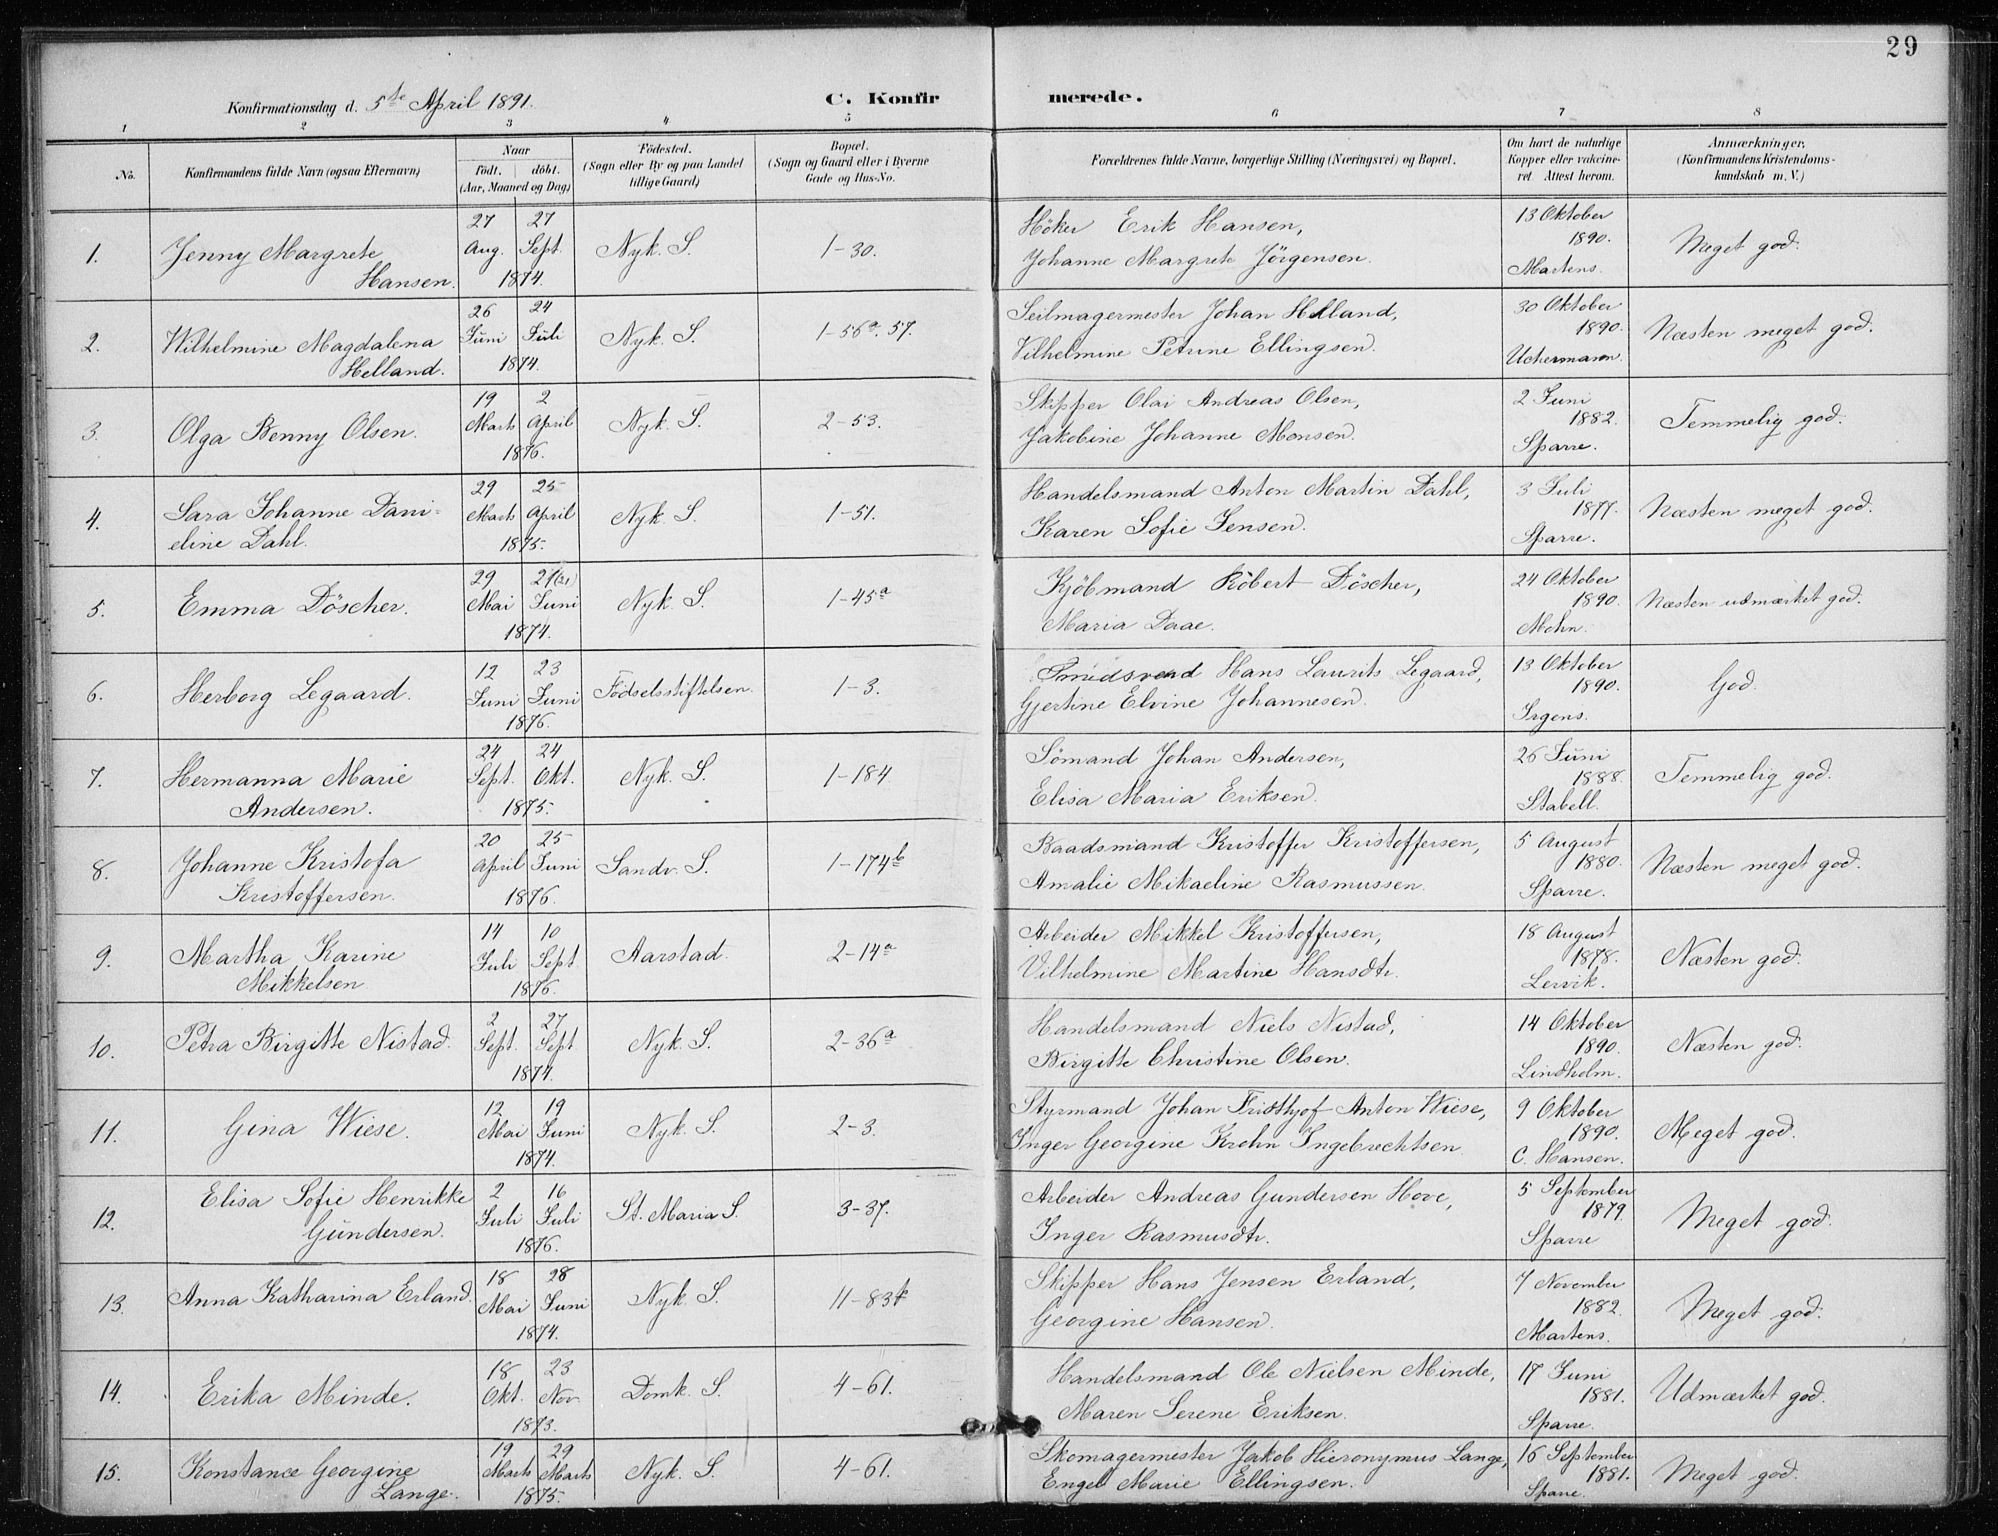 29
Konfirmationsdag d. 5te April 1891.
C. Konfirmerede.
1 2 3 4 5 6 7 8
No. Konfirmandens fulde Navn (ogsaa Efternavn) Naar födt. döbt. (Aar, Maaned og Dag) Födested. (Sogn eller By og paa Landet tillige Gaard) Bopæl. (Sogn og Gaard eller i Byerne Gade og Hus-No. Forældrenes fulde Navne, borgerlige Stilling (Næringsvei) og Bopæl. Om havt de naturlige Kopper eller vakcineret. Attest herom. Anmærkninger, (Konfirmandens Kristendomskundskab m. V.)
1. Jenny Margrete Hansen. 27 Aug. 27 Sept. 1874. Nyk. S. 1-30. Höker Erik Hansen, Johanne Margrete Jörgensen. 13 Oktober 1890. Martens. Meget god.
2. Wilhelmine Magdalena Helland. 26 Juni 24 Juli 1874. Nyk. S. 1-56a. 57. Seilmagermester Johan Helland, Vilhelmine Petrine Ellingsen. 30 Oktober 1890. Uchermann. Næsten meget god.
3. Olga Benny Olsen. 19 Marts 2 April 1876. Nyk. S. 2-53. Skipper Olai Andreas Olsen, Jakobine Johanne Monsen. 2 Juni 1882. Sparre. Temmelig god.
4. Sara Johanne Danieline Dahl. 29 Marts 25 April 1875. Nyk. S. 1-51. Handelsmand Anton Martin Dahl, Karen Sofie Jensen. 3 Juli 1877. Sparre. Næsten meget god.
5. Emma Döscher. 29 Mai Juni 1874. Nyk. S. 1-45a Kjöbmand Robert Döscher, Maria Daae. 24 Oktober 1890. Mohn. Næsten udmærket god.
6. Herborg Legaard. 12 Juni 23 Juni 1876. Födselsstiftelsen. 1-3. Smedsvend Hans Laurits Legaard, Gjertine Elvine Johannesen. 13 Oktober 1890. Irgens. God.
7. Hermanna Marie Andersen. 24 Sept. 24 Okt. 1875. Nyk. S. 1-184 Sömand Johan Andersen, Elisa Maria Eriksen. 26 Juni 1888. Stabell. Temmelig god.
8. Johanne Kristofa Kristoffersen. 20 April 25 Juni 1876. Sandv. S. 1-174b Baadsmand Kristoffer Kristoffersen, Amalie Mikaeline Rasmussen. 5 August 1880. Sparre. Næsten meget god.
9. Martha Karine Mikkelsen 14 Juli 10 Sept 1876. Aarstad. 2-14a Arbeider Mikkel Kristoffersen, Vilhelmine Martine Hansdtr. 18 August 1878. Lervik. Næsten god.
10. Petra Birgitte Nistad. 2 Sept. 27 Sept 1874. Nyk. S. 2-36a Handelsmand Niels Nistad, Birgitte Christine Olsen. 14 Oktober 1890. Lindholm. Næsten god.
11. Gina Wiese. 12 Mai 19 Juni 1874. Nyk. S. 2-3. Styrmand Johan Fridthjof Anton Wiese, Inger Georgine Krohn Ingebrechtsen. 9 Oktober 1890. C. Hansen. Meget god.
12. Elisa Sofie Henrikke Gundersen. 2 Juli 16 Juli 1876. St. Maria S. 3-37. Arbeider Andreas Gundersen Hove, Inger Rasmusdtr. 5 September 1879. Sparre Meget god.
13. Anna Katharina Erland. 18 Mai 28 Juni 1874. Nyk. S. 11-83 Skipper Hans Jensen Erland, Georgine Hansen. 7 November 1882. Martens. Meget god.
14. Erika Minde. 18 Okt. 23 Nov. 1873. Domk. S. 4-61. Handelsmand Ole Nielsen Minde, Maren Serene Eriksen. 17 Juni 1881. Sparre. Udmærket god.
15. Konstance Georgine Lange. 19 Marts 29 Marts 1875. Nyk. S. 4-61. Skomagermester Jakob Hieronymus Lange, Engel Marie Ellingsen. 16 September 1881. Sparre. Meget god.